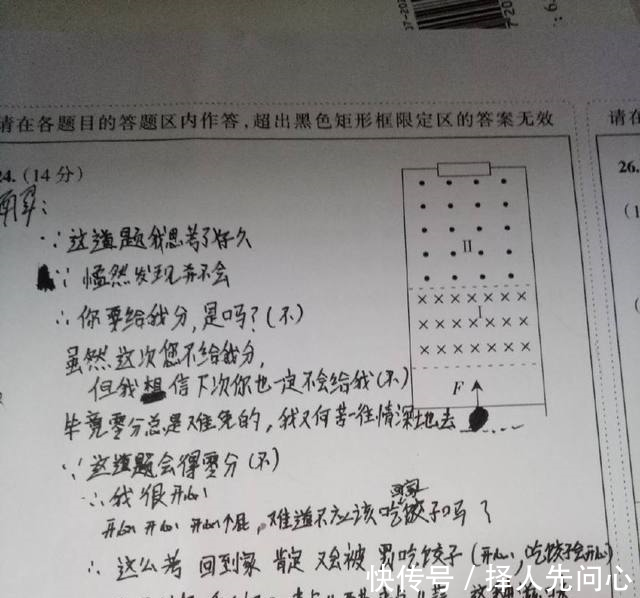 07-20
请在各题目的答题区内作答,超出黑色矩形框限定区的答案无效
请在
24.(14分)
26.
(1
解:
∵这道题我思考了好久
∵ 恍然发现并不会
∴你要给我分,是吗?(不)
虽然这次您不给我分,
但我想信下次你也一定不会给我(不)
毕竟零分总是难免的,我又何苦一往情深地去
∵这道题会得零分(不)
∴我很开心
开心开心开心个屁,难道不应该回家吃饺子吗了
∴这么考 回到家 肯定 又会被 骂吃饺子(开心,吃饺子会开心)
II
× × × × × × ×
I
× × × × × × ×
× × × × × × ×
F
快传号 / 择人先问心